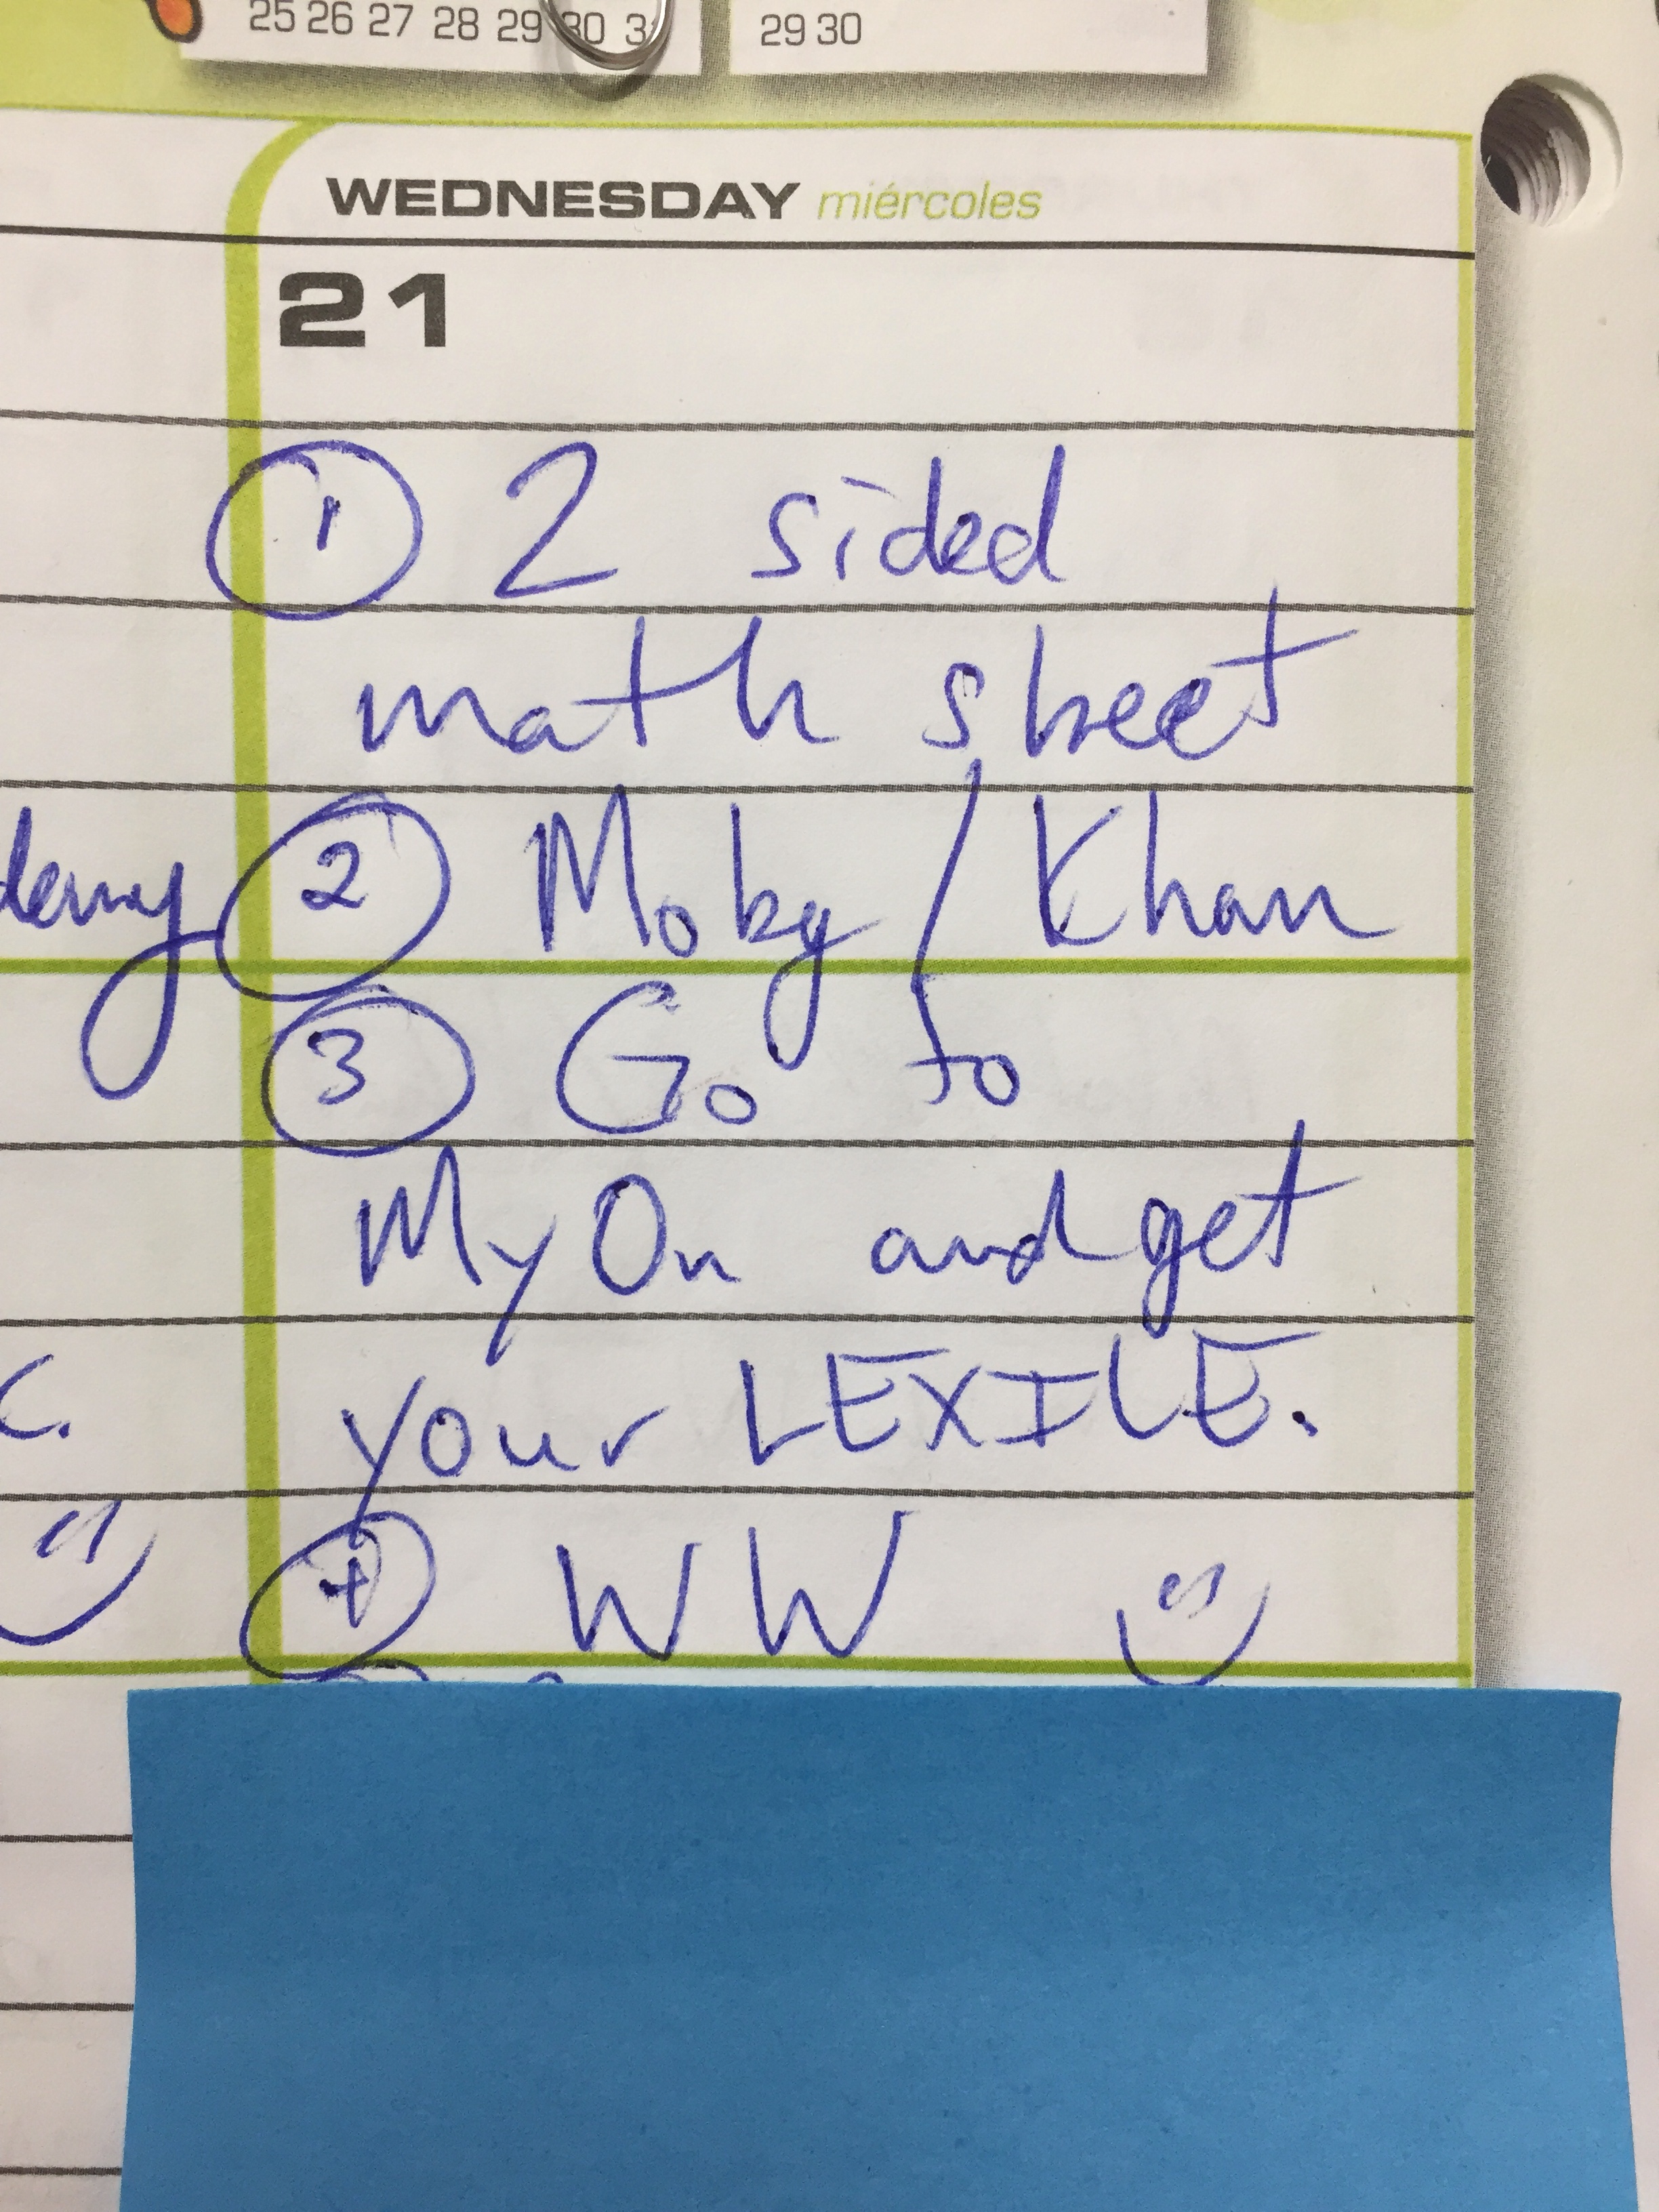 25 26 27 28 29 30
29 30
WEDNESDAY miércoles
21
① 2 sided
math sheet
② Moby / Khan
③ Go to
MyOn and get
your LEXILE.
C.
④ WW